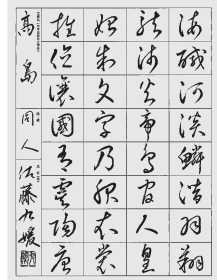 海鹹河淡鱗潛羽翔
龍師火帝鳥官人皇
始制文字乃服衣裳
推位讓國有虞陶唐
高島
同人
佐藤九媛